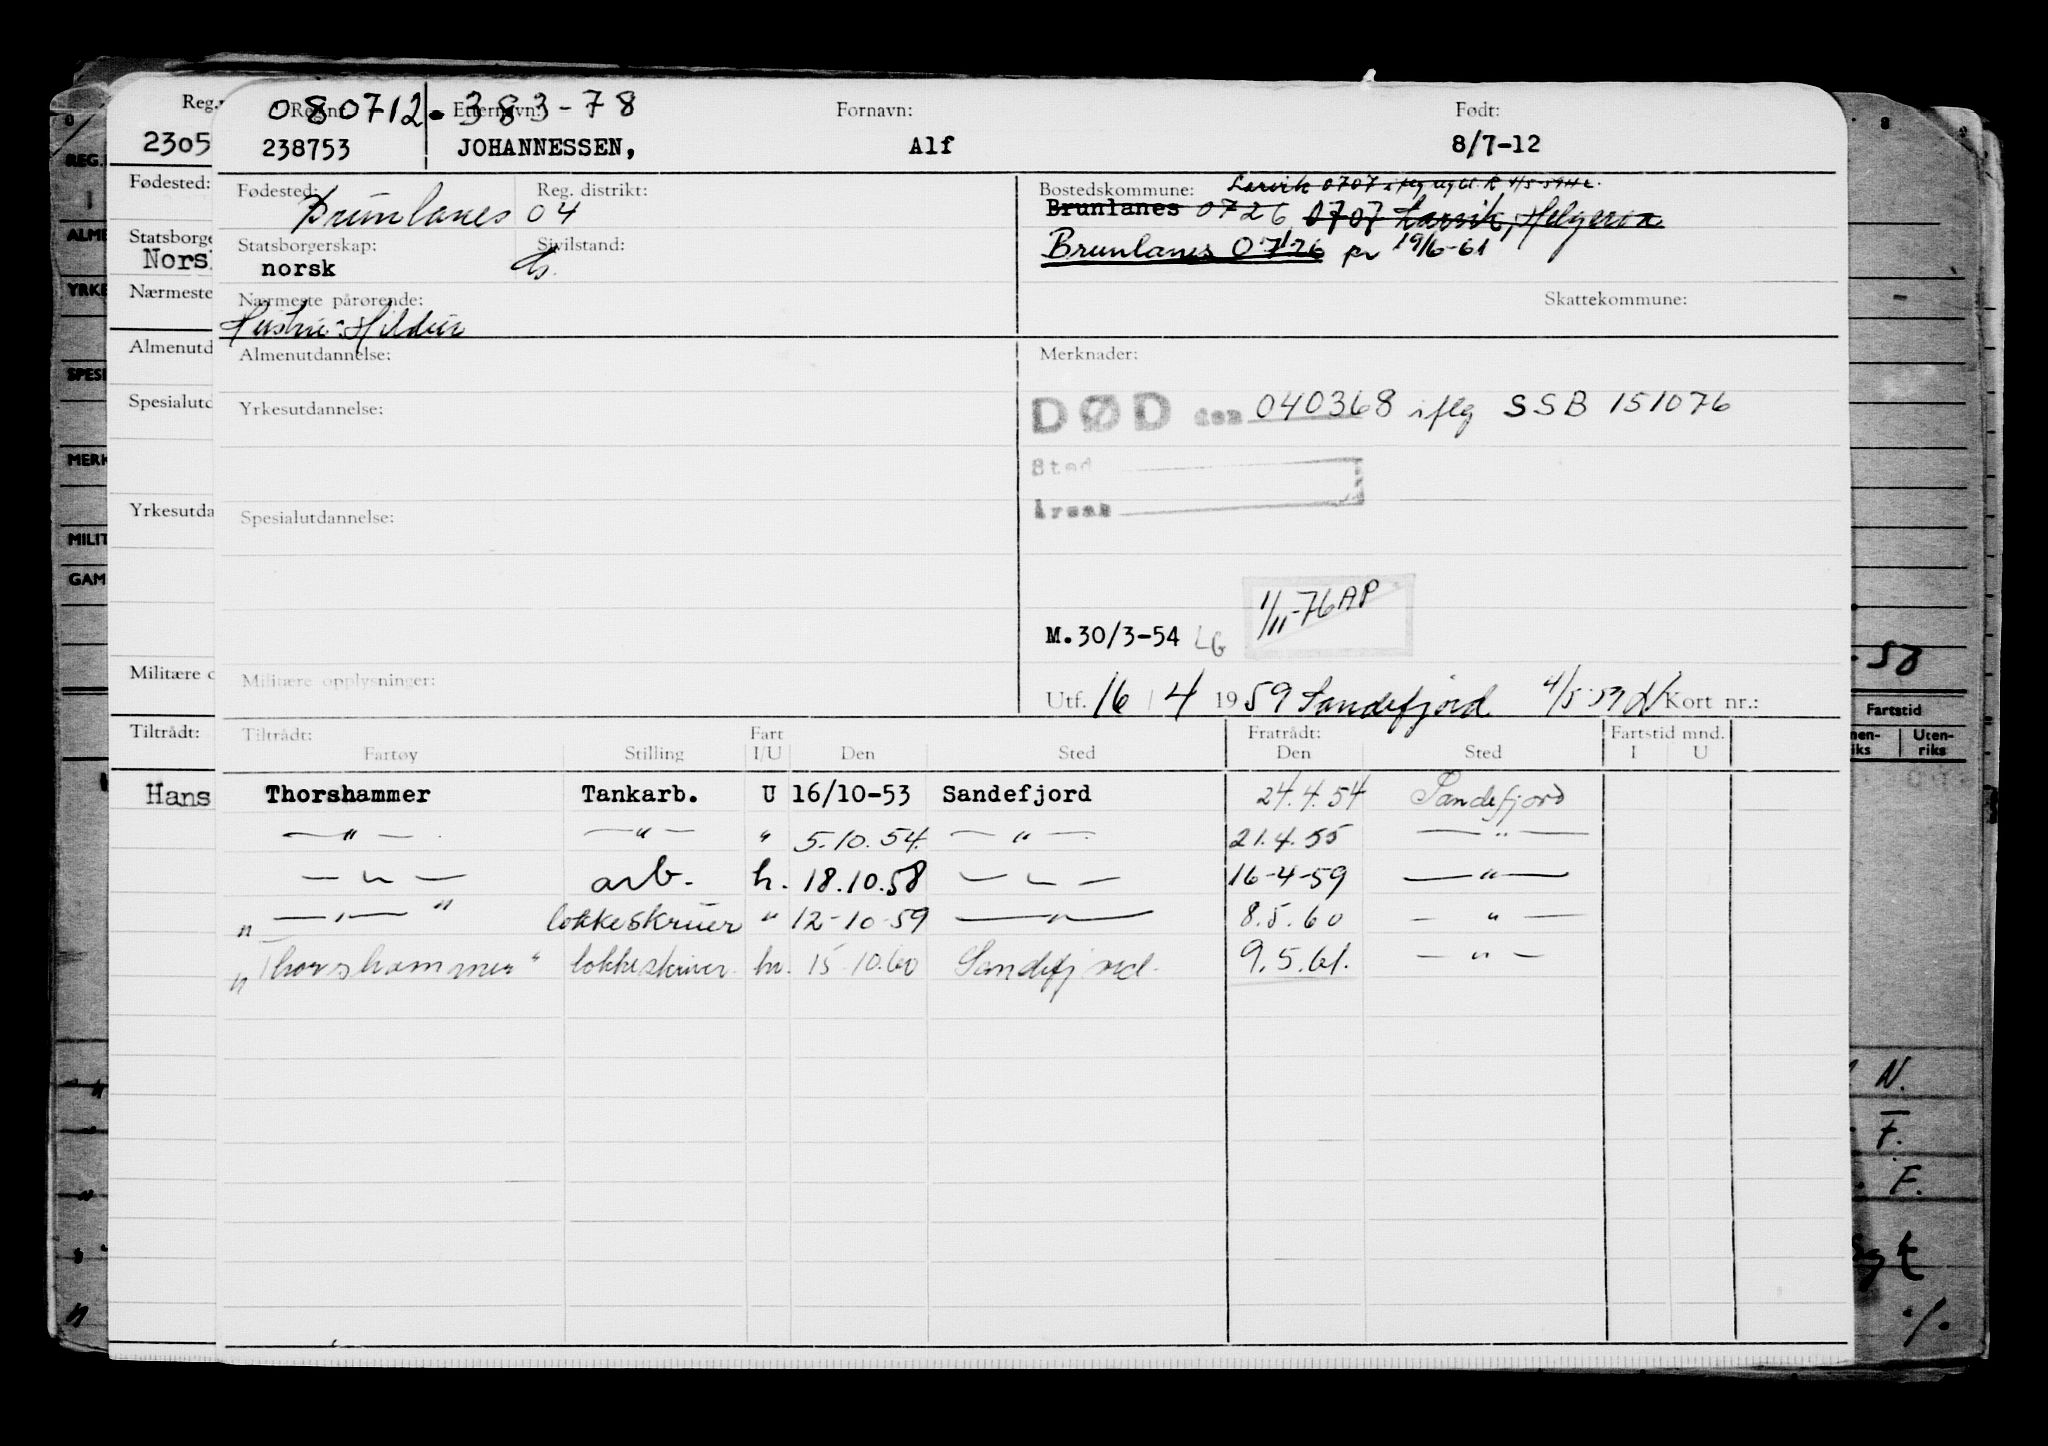 080712.383-78
Reg.nr. Etternavn: Fornavn: Født:
2305 238753 JOHANNESSEN, Alf 8/7-12
Fødested: Fødested: Reg. distrikt: Bostedskommune: Larvik 0707
Brunlanes 04 Brunlanes 0726 0707 Larvik, Helgeroa
Statsborgerskap: Sivilstand: Brunlanes 0726 pr 19/6-61
Nors norsk
Nærmeste Nærmeste pårørende: Skattekommune:
Hustru: Hildur
Almenutd Almenutdannelse: Merknader:
Spesialutd Yrkesutdannelse: DØD den 040368 iflg SSB 151076
Sted
Årsak
Yrkesutda Spesialutdannelse:
1/11-76 AP
M.30/3-54 LG
Militære o Militære opplysninger: Utf. 16 / 4 1959 Sandefjord 4/5-59 Kort nr.:
Tiltrådt: Tiltrådt: Fart Fratrådt: Fartstid mnd.
Fartøy Stilling I/U Den Sted Den Sted I U
Hans Thorshammer Tankarb. U 16/10-53 Sandefjord 24.4.54 Sandefjord
—"— —"— " 5.10.54. —"— 21.4.55 —"—
—"— arb. h. 18.10.58 —"— 16-4-59 —"—
" —"— " kokkeskriver " 12-10-59 —"— 8.5.60 —"—
"Thorshammer" kokkeskriver hv. 15.10.60 Sandefjord. 9.5.61. —"—
REG.
ALME
YRKE
SPESI
MERK
MILIT
GAM
.58
Fartstid
Uten-
riks
N.
F.
F.